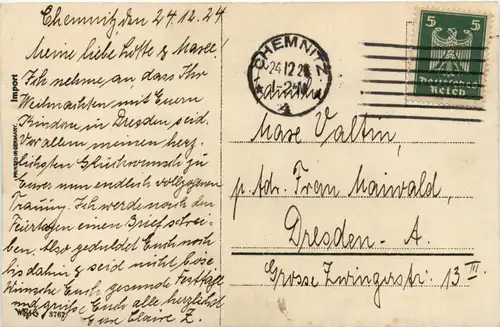 Chemnitz, den 24.12.24.
Meine liebe Lotte & Maree!
Ich nehme an, dass Ihr
Weihnachten mit Euern
Kindern in Dresden seid.
Vor allem meinen herz
lichsten Glückwunsch zu
Eurer nun endlich vollzogenen
Trauung. Ich werde nach den
Feiertagen einen Brief schrei-
ben. Also geduldet Euch noch
bis dahin & seid nicht böse.
Wünsche Euch gesunde Festtage
und grüße Euch alle herzlichst
Eure Claire Z.
Import
PRINTED IN GERMANY
3762
CHEMNITZ
24.12.2
A
5 5
Deutsches
Reich
Familie
Mare Valtin,
p. Adr. Frau Maiwald,
Dresden - A.
Grosse Zwingerstr. 13 III